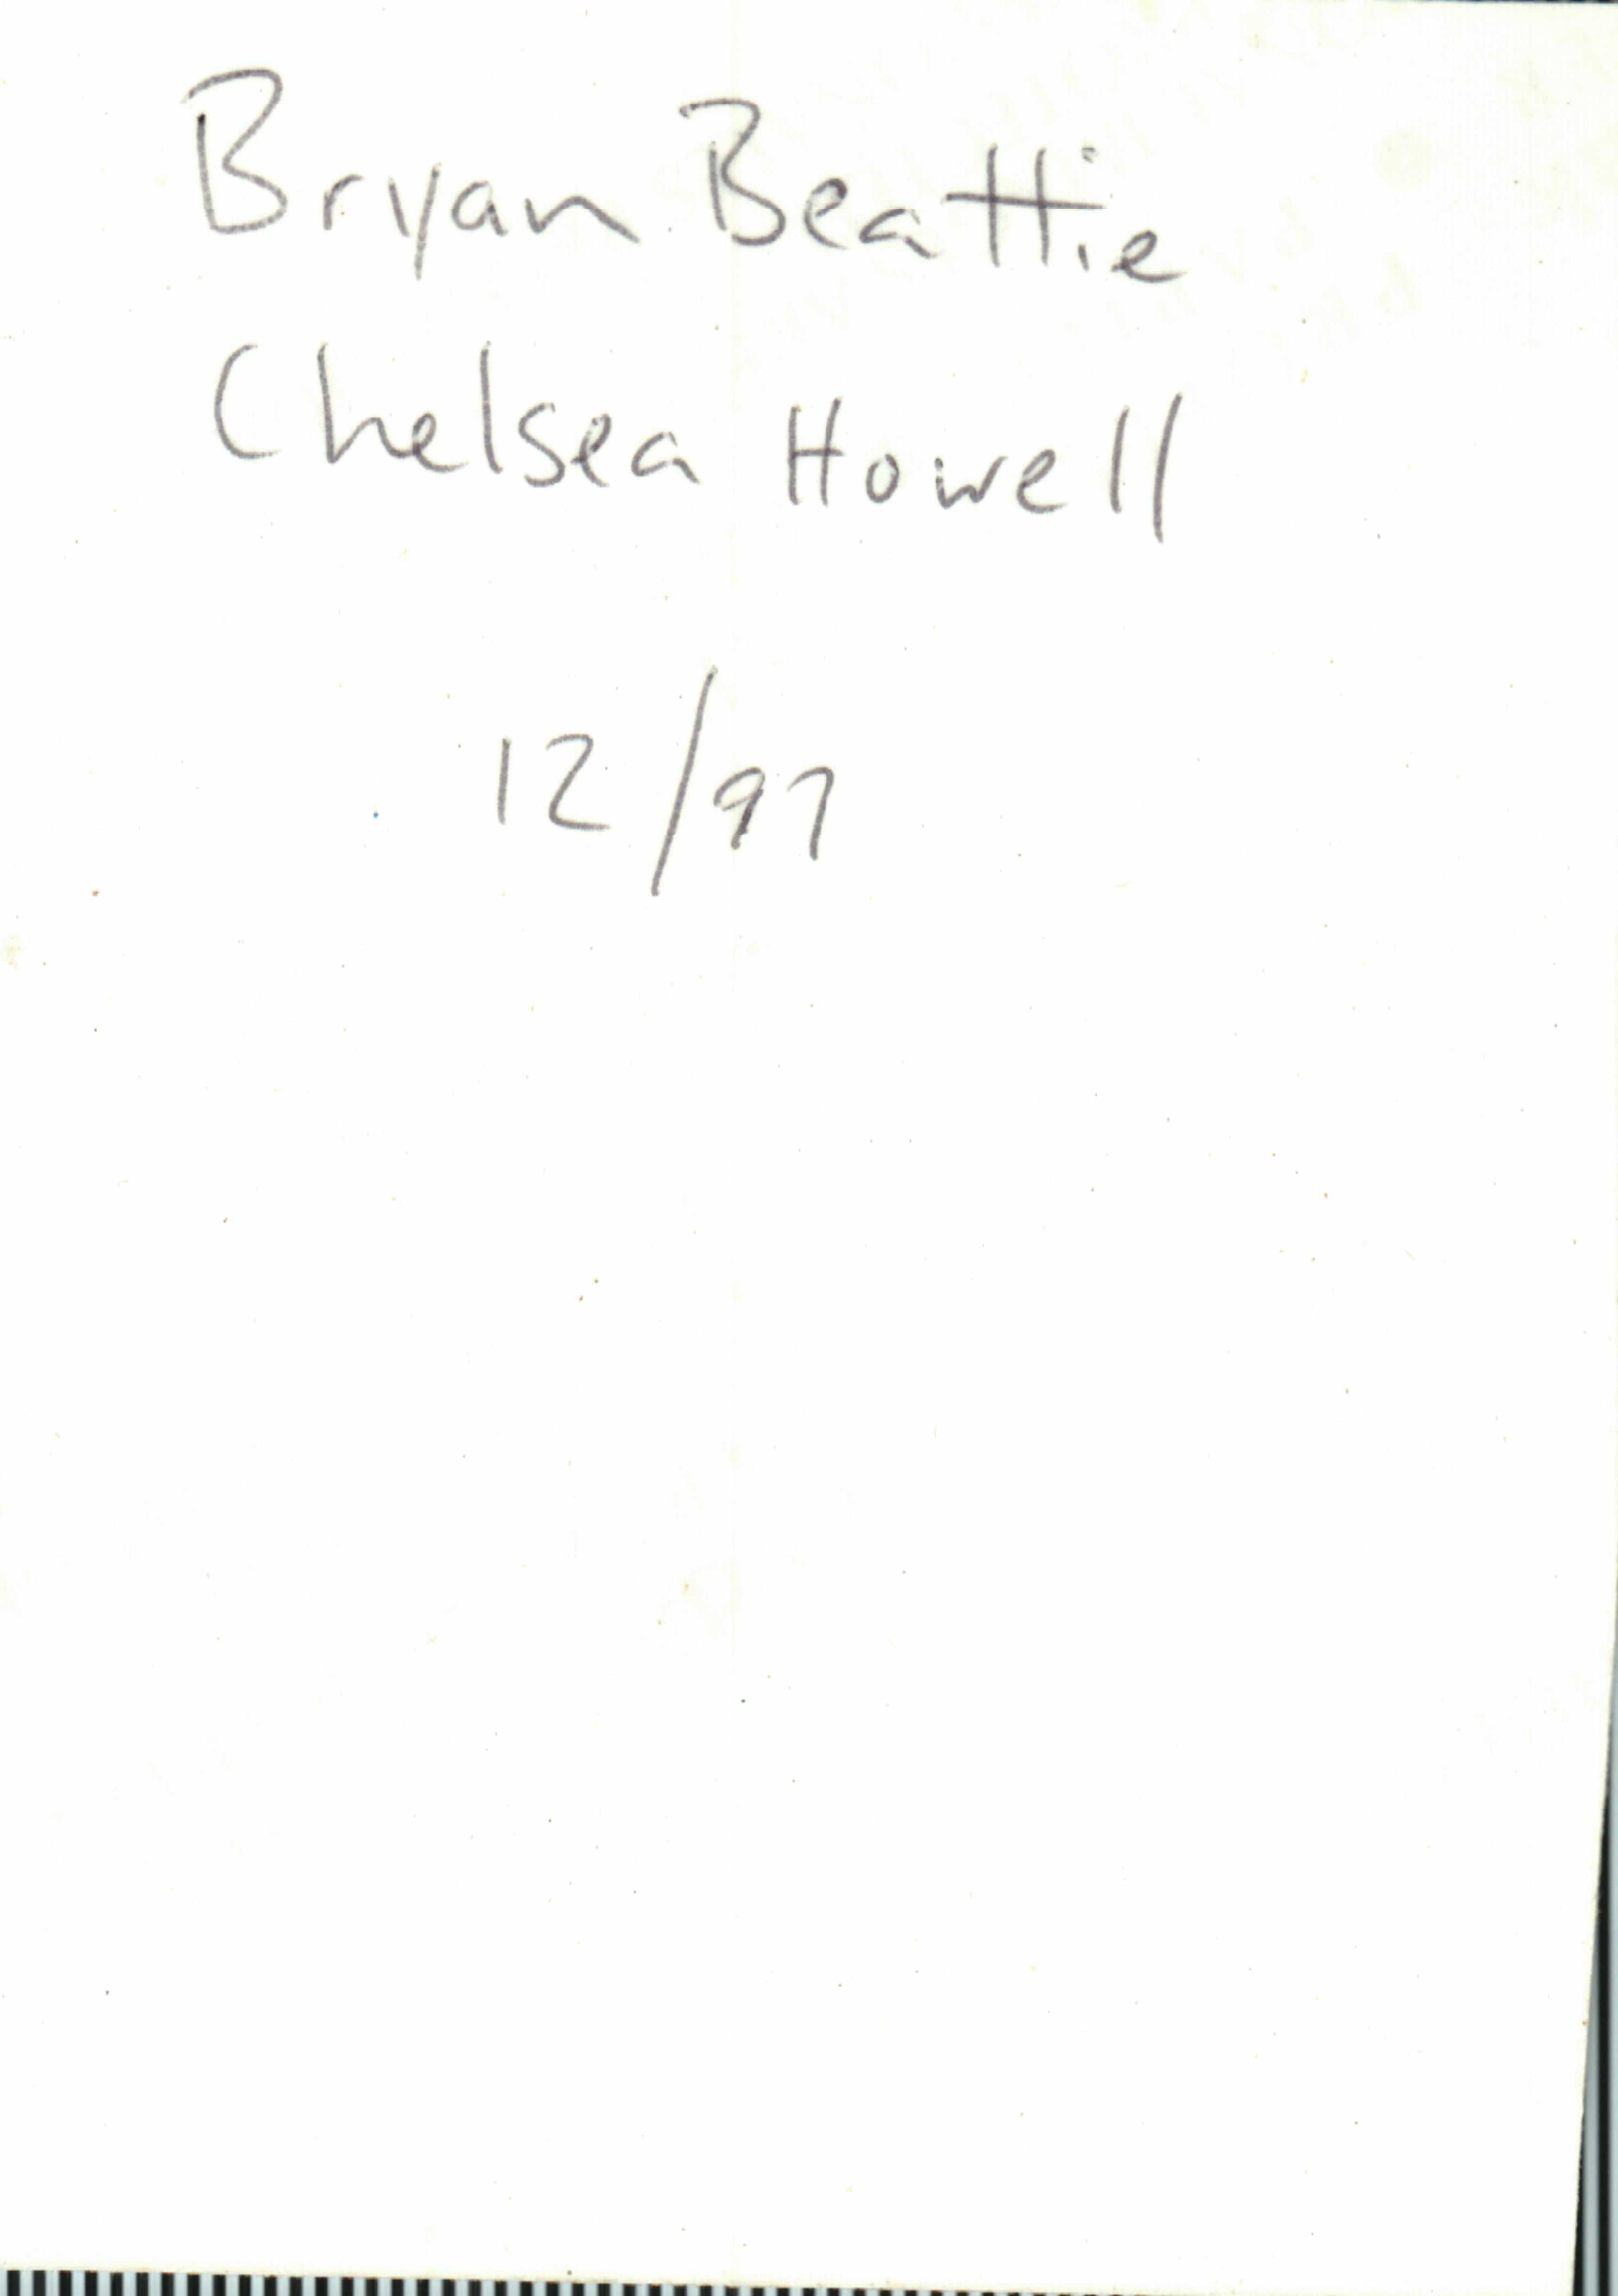 Bryan Beattie
Chelsea Howell
12/97